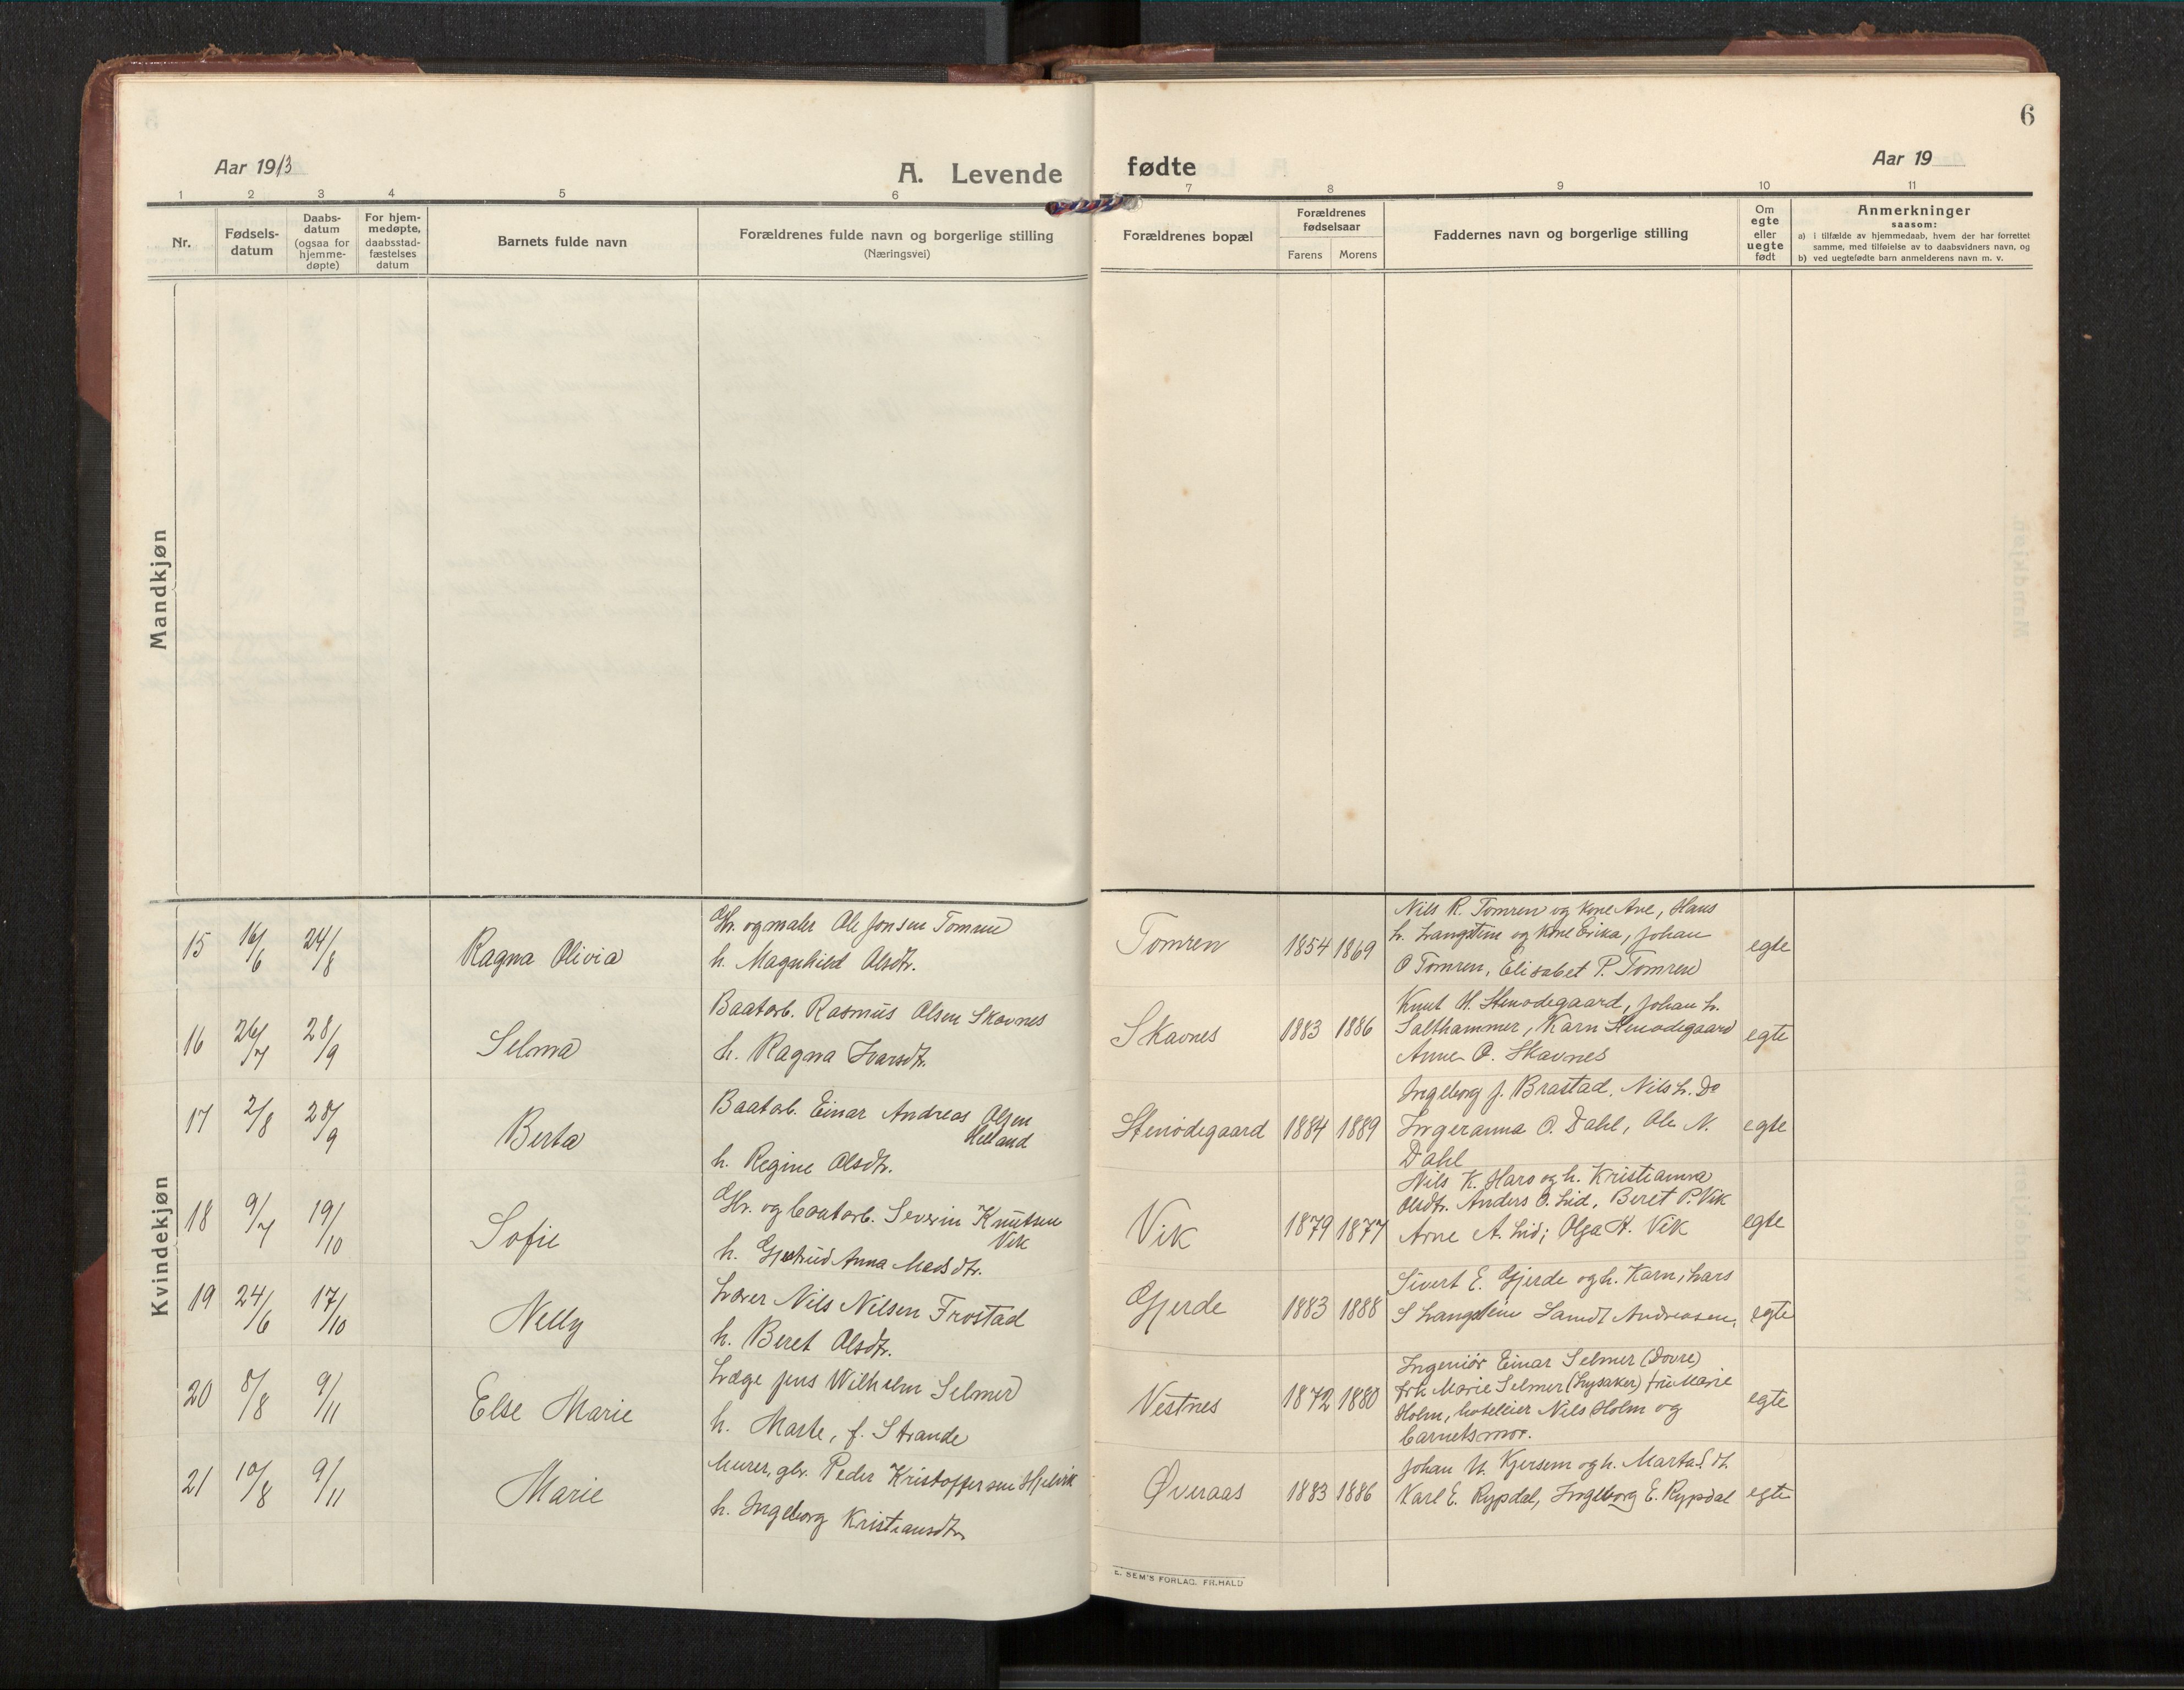 6
Aar 1913
A. Levende fødte
Aar 19
1 2 3 4 5 6 7 8 9 10 11
Nr.
Fødsels-
datum
Daabs-
datum
(ogsaa for
hjemme-
døpte)
For hjem-
medøpte,
daabsstad-
fæstelses
datum
Barnets fulde navn
Forældrenes fulde navn og borgerlige stilling
(Næringsvei)
Forældrenes bopæl
Forældrenes
fødselsaar
Farens Morens
Faddernes navn og borgerlige stilling
Om
egte
eller
uegte
født
Anmerkninger
saasom:
a) i tilfælde av hjemmedaab, hvem der har forrettet
samme, med tilføielse av to daabsvidners navn, og
b) ved uegtefødte barn anmelderens navn m. v.
Mandkjøn
Kvindekjøn
15 16/6 24/8 Ragna Olivia
Gbr. og maler Ole Jonsen Tomren
h. Magnhild Olsdtr.
Tomren 1854 1869
Nils R. Tomren og kone Ane, Hans
L. Langstein og kone Erika, Johan
O Tomren, Elisabet P. Tomren
egte
16 26/7 28/9 Selma
Baatarb. Rasmus Olsen Skavnes
h. Ragna Ivarsdtr.
Skavnes 1883 1886
Knut H. Stenødegaard, Johan L.
Salthammer, Karn Stenødegaard
Anne O. Skavnes
egte
17 2/8 28/9 Berta
Baatarb. Einar Andreas Olsen
Helland
h. Regine Olsdtr.
Stenødegaard 1884 1889
Ingeborg J. Brastad, Nils L. Do
Ingeranna O. Dahl, Ole N.
Dahl
egte
18 9/7 19/10 Sofie
Gbr. og baatarb. Severin Knutsen
Vik
h. Gjertrud Anna Madsdtr.
Vik 1879 1877
Nils K. Haro og h. Kristianna
Olsdtr. Anders O. Lid, Beret P. Vik
Arne A. Lid; Olga K. Vik
egte
19 24/6 17/10 Nelly
Lærer Nils Nilsen Frostad
h. Beret Olsdtr.
Gjerde 1883 1888
Sivert E. Gjerde og h. Karn, Lars
S Langstein Andreasen,
egte
20 8/8 9/11 Else Marie
Læge Jens Wilhelm Selmer
h. Marte, f. Strande
Vestnes 1872 1880
Ingeniør Einar Selmer (Dovre)
frk Marie Selmer (Lysaker) fru Marie
Holm, hoteleier Nils Holm og
barnets mor.
egte
21 10/8 9/11 Marie
Murer, gbr. Peder Kristoffersen Hjelvik
h. Ingeborg Kristiansdtr
Øveraas 1883 1886
Johan N. Kjersem og h. Marta S. dt.
Karl E. Rypdal, Ingeborg E. Rypdal
egte
E. SEM'S FORLAG. FR.HALD